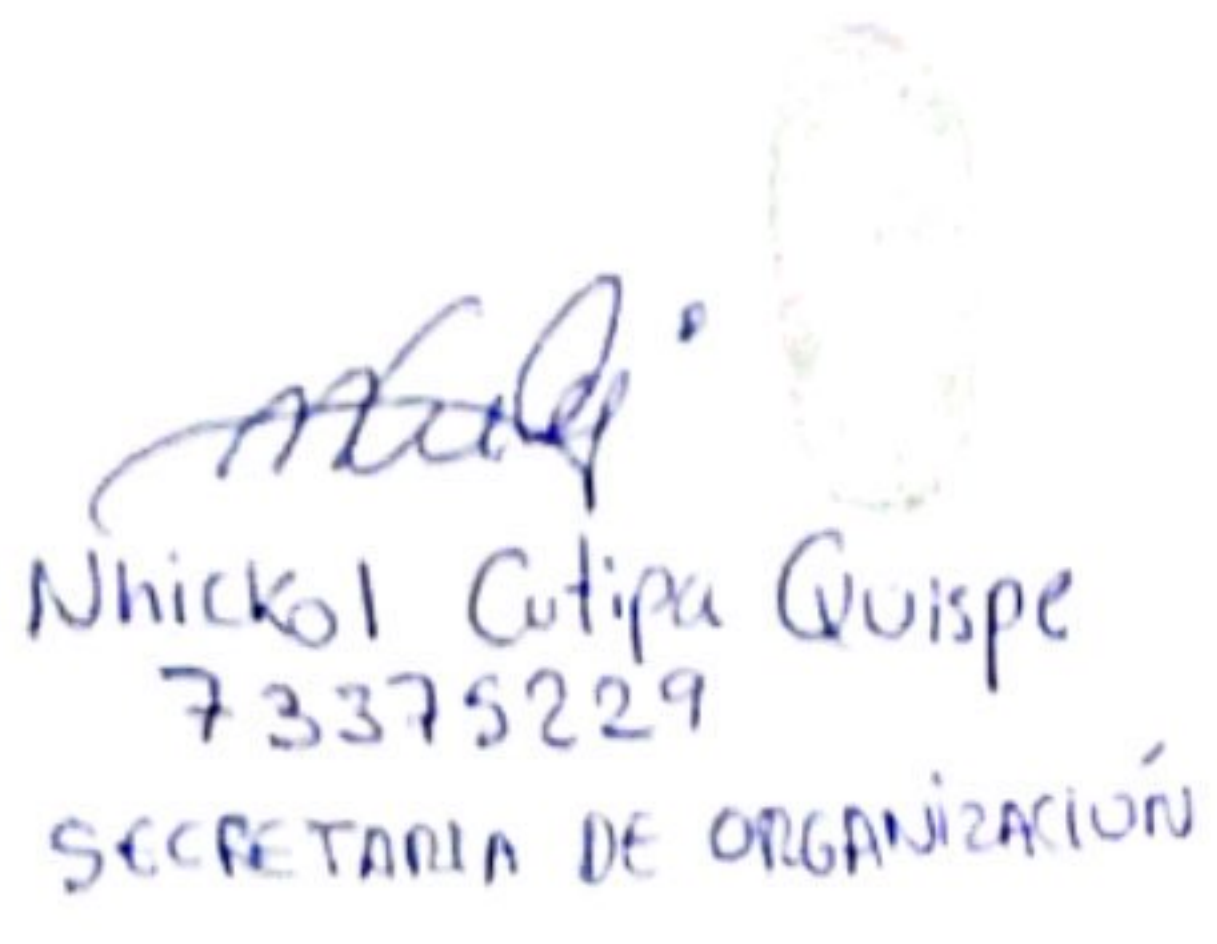 Nhickol Cutipa Quispe
73375229
SECRETARIA DE ORGANIZACIÓN